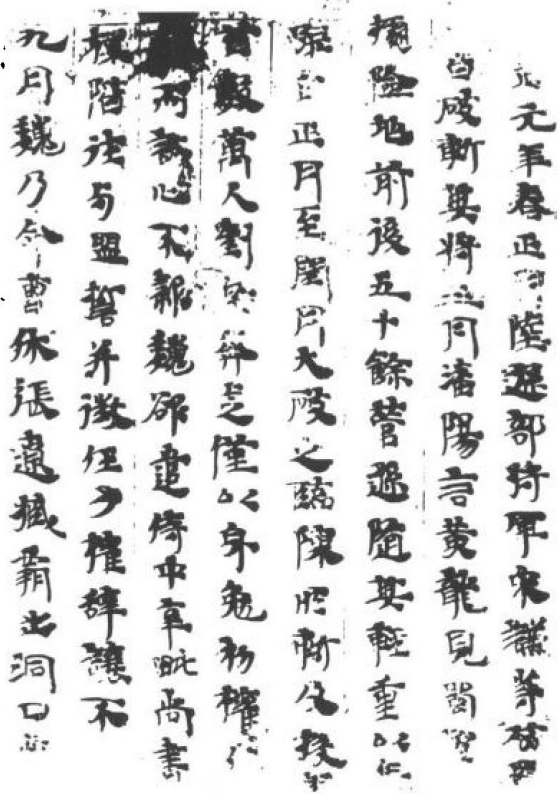 元年春正月陸遜部將軍宋謙等攻
皆破斬其將三月潘陽言黃龍見蜀
據險地前後五十餘營遜隨其輕重以
正月至閏月大破之臨陳所斬及投
首數萬人劉備奔走僅以身免初權
而誠心不款魏欲遣侍中辛毗尚書
桓階往与盟誓并徵任子權辭讓不
九月魏乃命曹休張遼臧霸出洞口